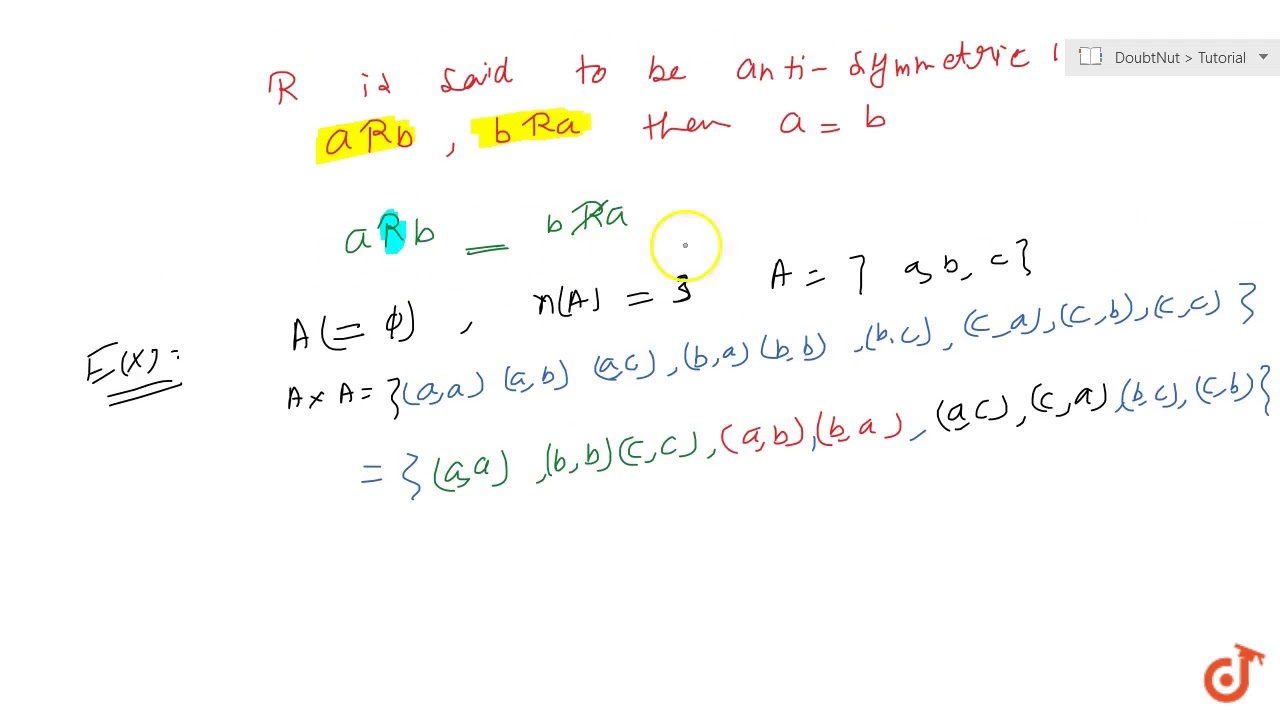 DoubtNut > Tutorial
R is said to be anti-symmetric
aRb, bRa then a = b
aRb — bRa
A(= φ), n(A) = 3 A = { a, b, c}
E(x):
A × A = {(a,a) (a,b) (a,c), (b,a) (b,b), (b,c), (c,a), (c,b), (c,c)}
= {(a,a), (b,b) (c,c), (a,b), (b,a), (a,c), (c,a), (b,c), (c,b)}